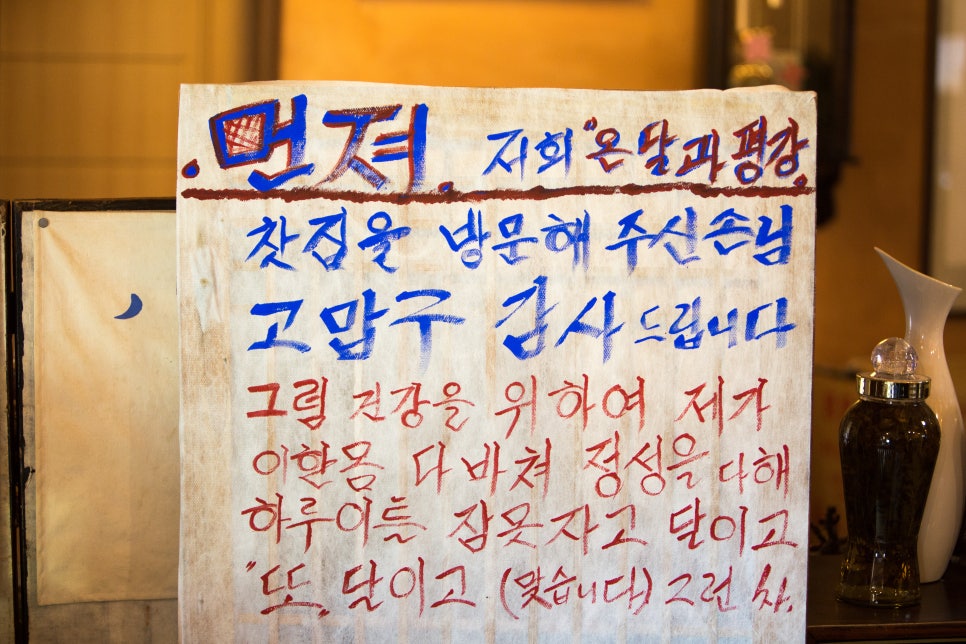 ·먼저. 저희 "온달과평강.
찻집을 방문해 주신손님
고맙구 감사드립니다
그럼 건강을 위하여 제가
이한몸 다바쳐 정성을 다해
하루이틀 잠못자고 달이고
"또, 달이고 (맞습니다) 그런 차.